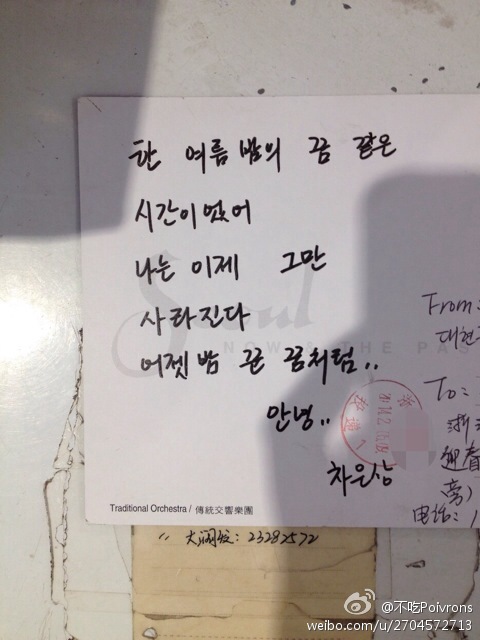 한 여름 밤의 꿈 같은
시간이었어
나는 이제 그만
사라진다
어젯밤 꾼 꿈처럼..
안녕..
차은상
Seoul
NOW & THE PAS
From:
대현
To:
浙
迎春
旁)
电话:
Traditional Orchestra / 傳統交響樂團
23282572
@不吃Poivrons
weibo.com/u/2704572713